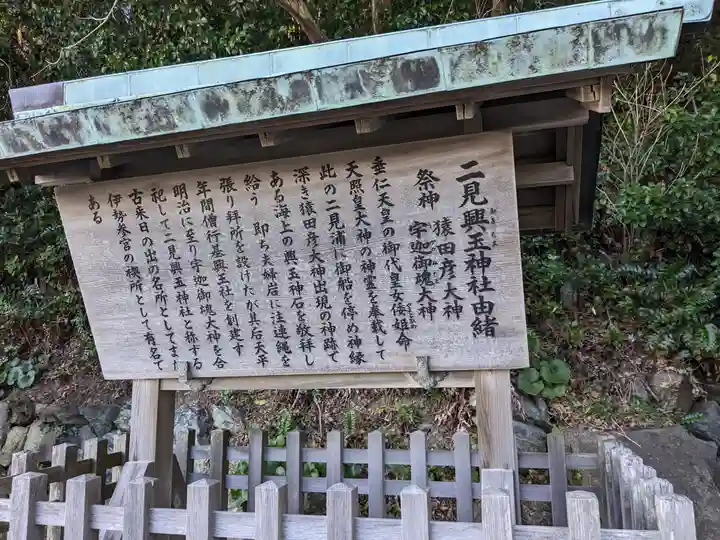 二見興玉神社由緒
おきたま
猿田彦大神
祭神 宇迦御魂大神
垂仁天皇の御代皇女倭姫命
天照皇大神の神霊を奉戴して
此の二見浦に御船を停め神縁
深き猿田彦大神出現の神跡で
ある海上の興玉神石を敬拝し
給う 即ち夫婦岩に注連縄を
張り拝所を設けたが其后天平
年間僧行基興玉社を創建す
明治に至り宇迦御魂大神を合
祀して二見興玉神社と称する
古来日の出の名所としてまた
伊勢参宮の禊所として有名で
ある